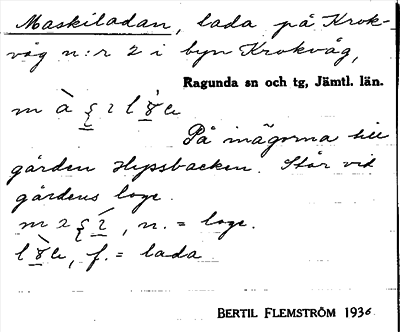 Maskiladan, lada på Krok-
våg n:r 2 i byn Krokvåg,
Ragunda sn och tg, Jämtl. län.
På inägorna till
gården Hypsbacken. Står vid
gårdens loge.
n. = loge.
f. = lada
BERTIL FLEMSTRÖM 1936.